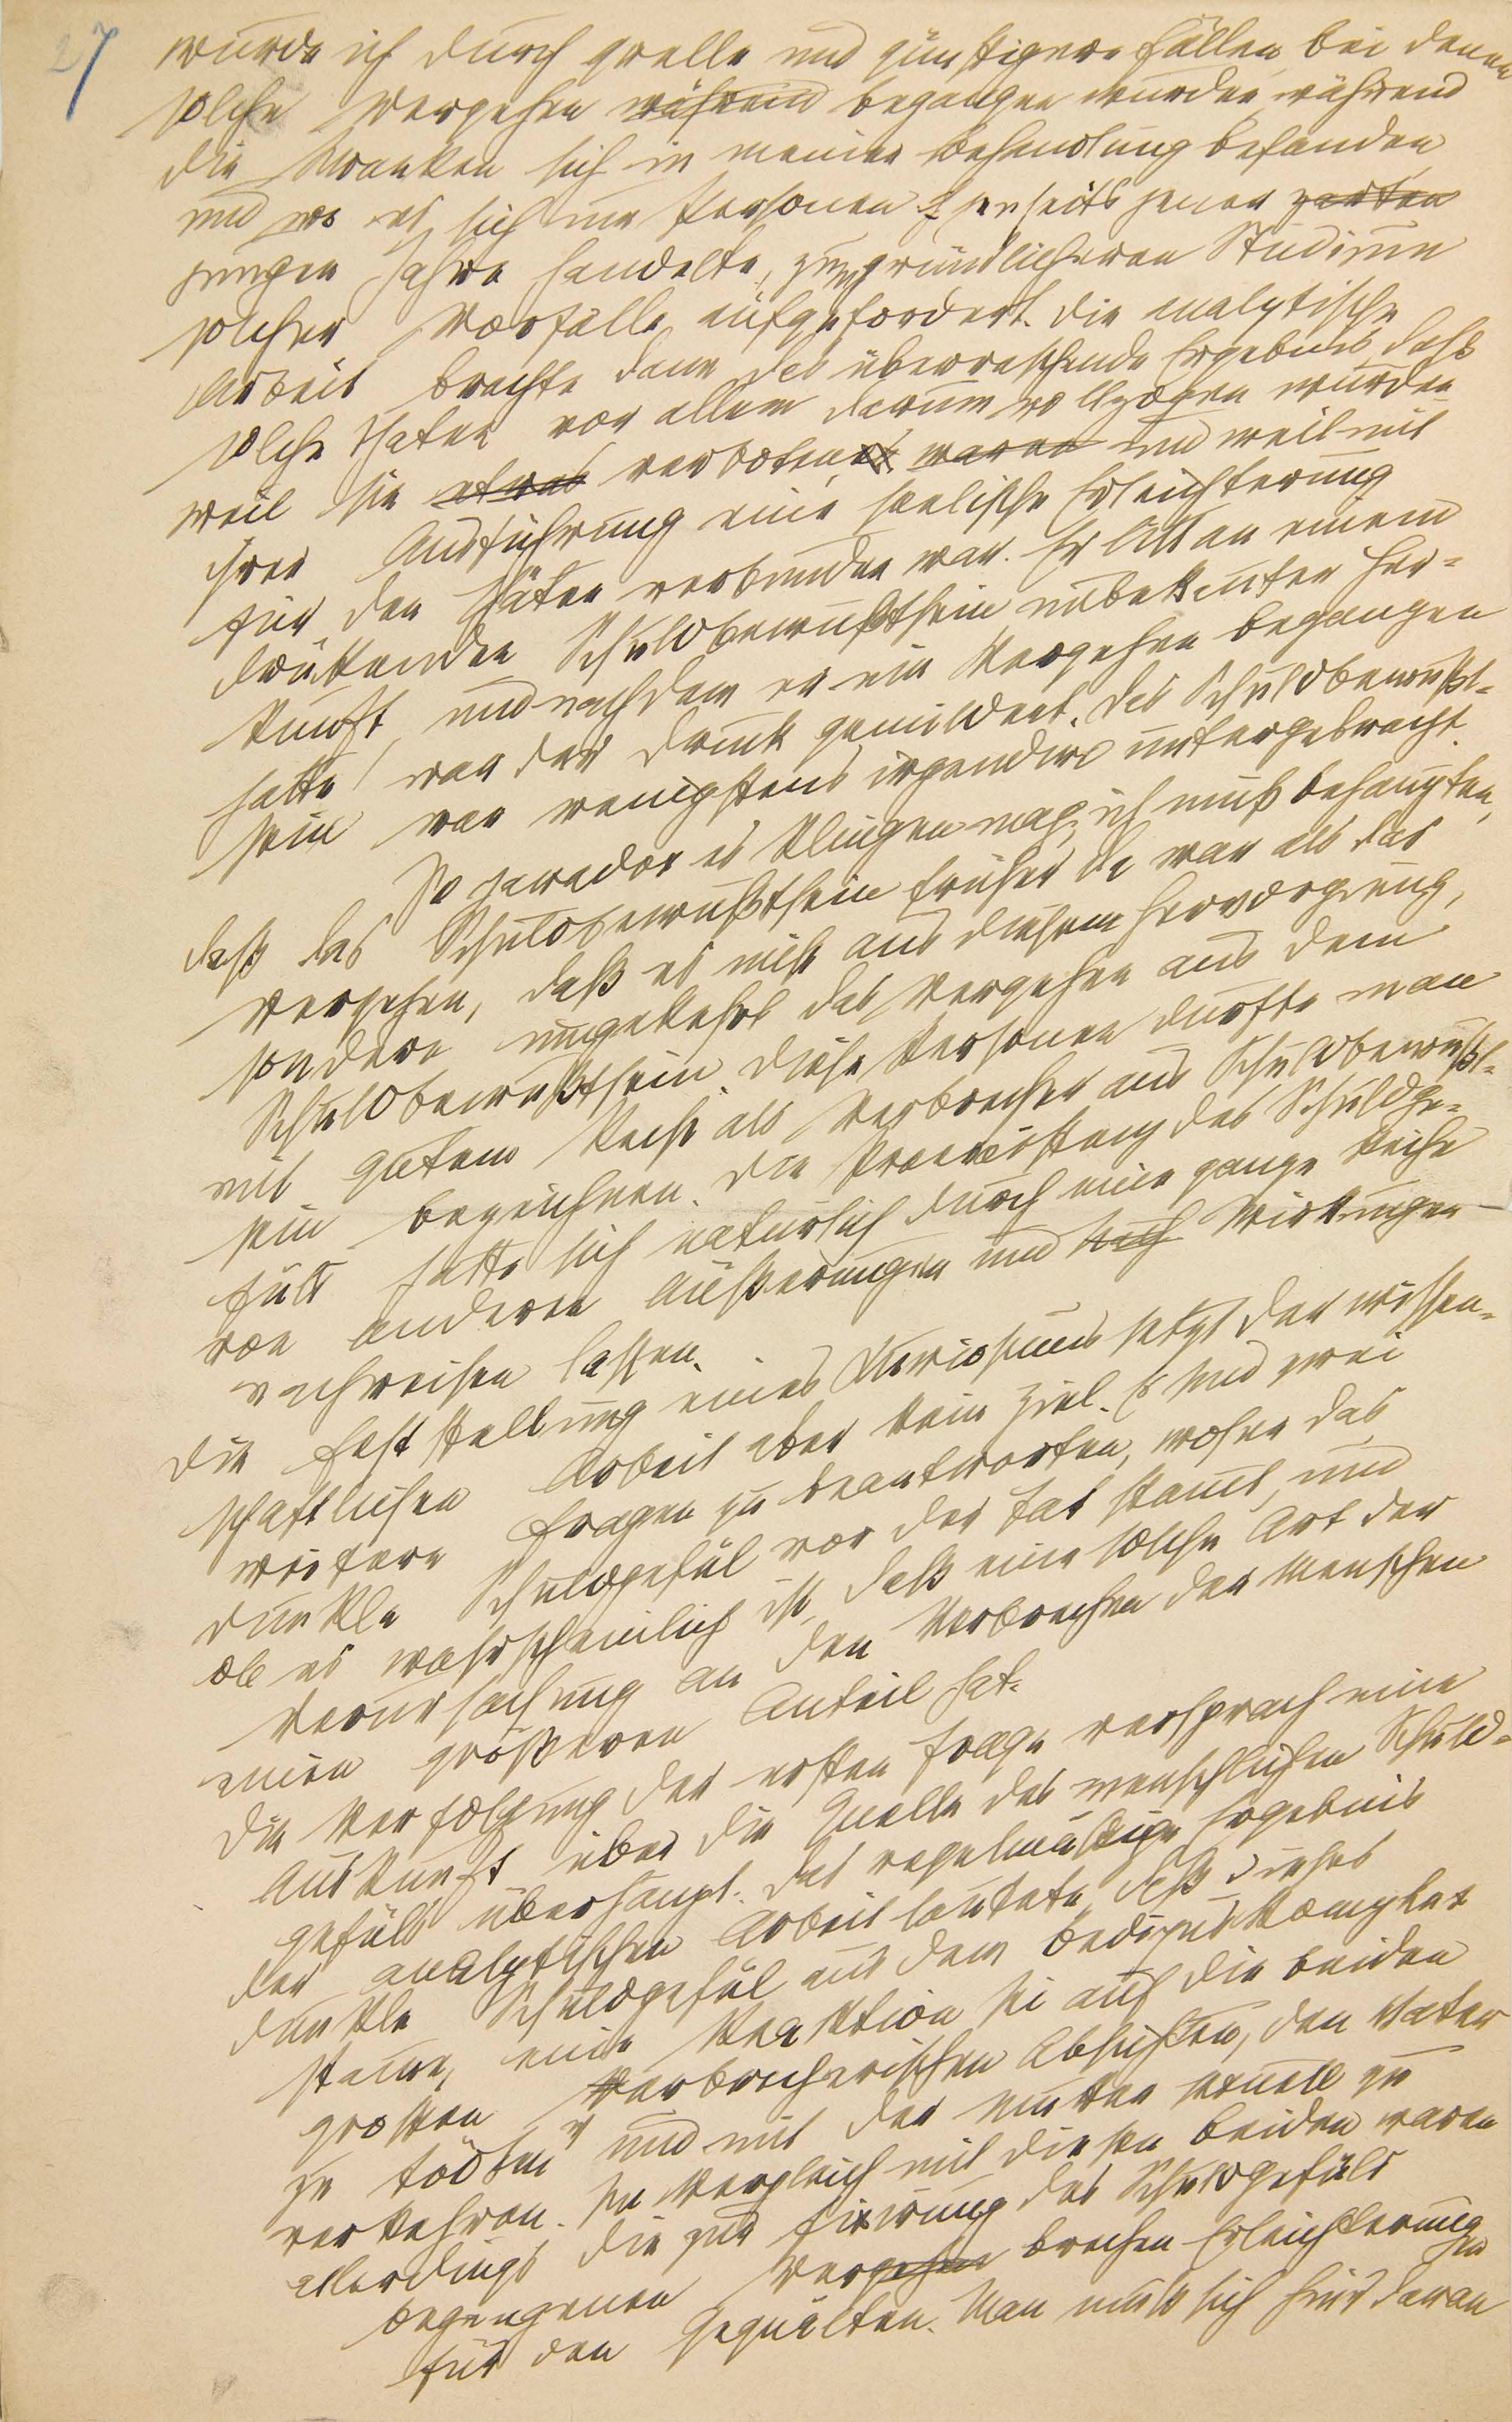 27
wurde ich durch grelle und günstigere Fällen bei denen
solche Vergehen während begangen wurden, während
die Kranken sich in meiner Behandlung befanden
und wo es sich um Personen jenseits jener zarten
jungen Jahre handelte, zum gründlicheren Studium
solcher Vorfälle aufgefordert. Die analytische
Arbeit brachte dann das überraschende Ergebnis, daß
solche Thaten vor allem darum vollzogen wurden
weil sie etwas verboten waren und weil mit
ihrer Ausführung eine seelische Erleichterung
für den Täter verbunden war. Er litt an einem
drückenden Schuldbewußtsein unbekannter Her-
kunft, und nachdem er ein Vergehen begangen
hatte, war der Druck gemildert. Das Schuldbewußt-
sein war wenigstens irgendwie untergebracht.
So paradox es klingen mag, ich muß behaupten,
daß das Schuldbewußtsein früher da war als das
Vergehen, daß es nicht aus diesem hervorgieng,
sondern umgekehrt das Vergehen aus dem
Schuldbewußtsein. Diese Personen durfte man
mit gutem Recht als Verbrecher aus Schuldbewußt-
sein bezeichnen. Die Praeexistenz des Schuldge-
fühls hatte sich natürlich durch eine ganze Reihe
von anderen Äußerungen und Wirkungen
nachweisen lassen.
Die Feststellung eines Kuriosums setzt der wissen-
schaftlichen Arbeit aber kein Ziel. Es sind zwei
weitere Fragen zu beantworten, woher das
dunkle Schuldgefül vor der Tat stamt, und
ob es wahrscheinlich ist, daß eine solche Art der
Verursachung an den Verbrechen der Menschen
einen größeren Anteil hat.
Die Verfolgung der ersten Frage versprach eine
Auskunft über die Quelle des menschlichen Schuld-
gefüls überhaupt. Das regelmäßige Ergebnis
der analytischen Arbeit lautete, daß dieses
dunkle Schuldgefül aus dem Oedipuskomplex
stame, eine Reaktion sei auf die beiden
großen verbrecherischen Absichten, den Vater
zu tödten und mit der Mutter sexuell zu
verkehren. Im Vergleich mit diesen beiden waren
allerdings die zur Fixirung des Schuldgefüls
begangenen Vergehen brechen Erleichterungen
für den Gequälten. Man muß sich hier daran